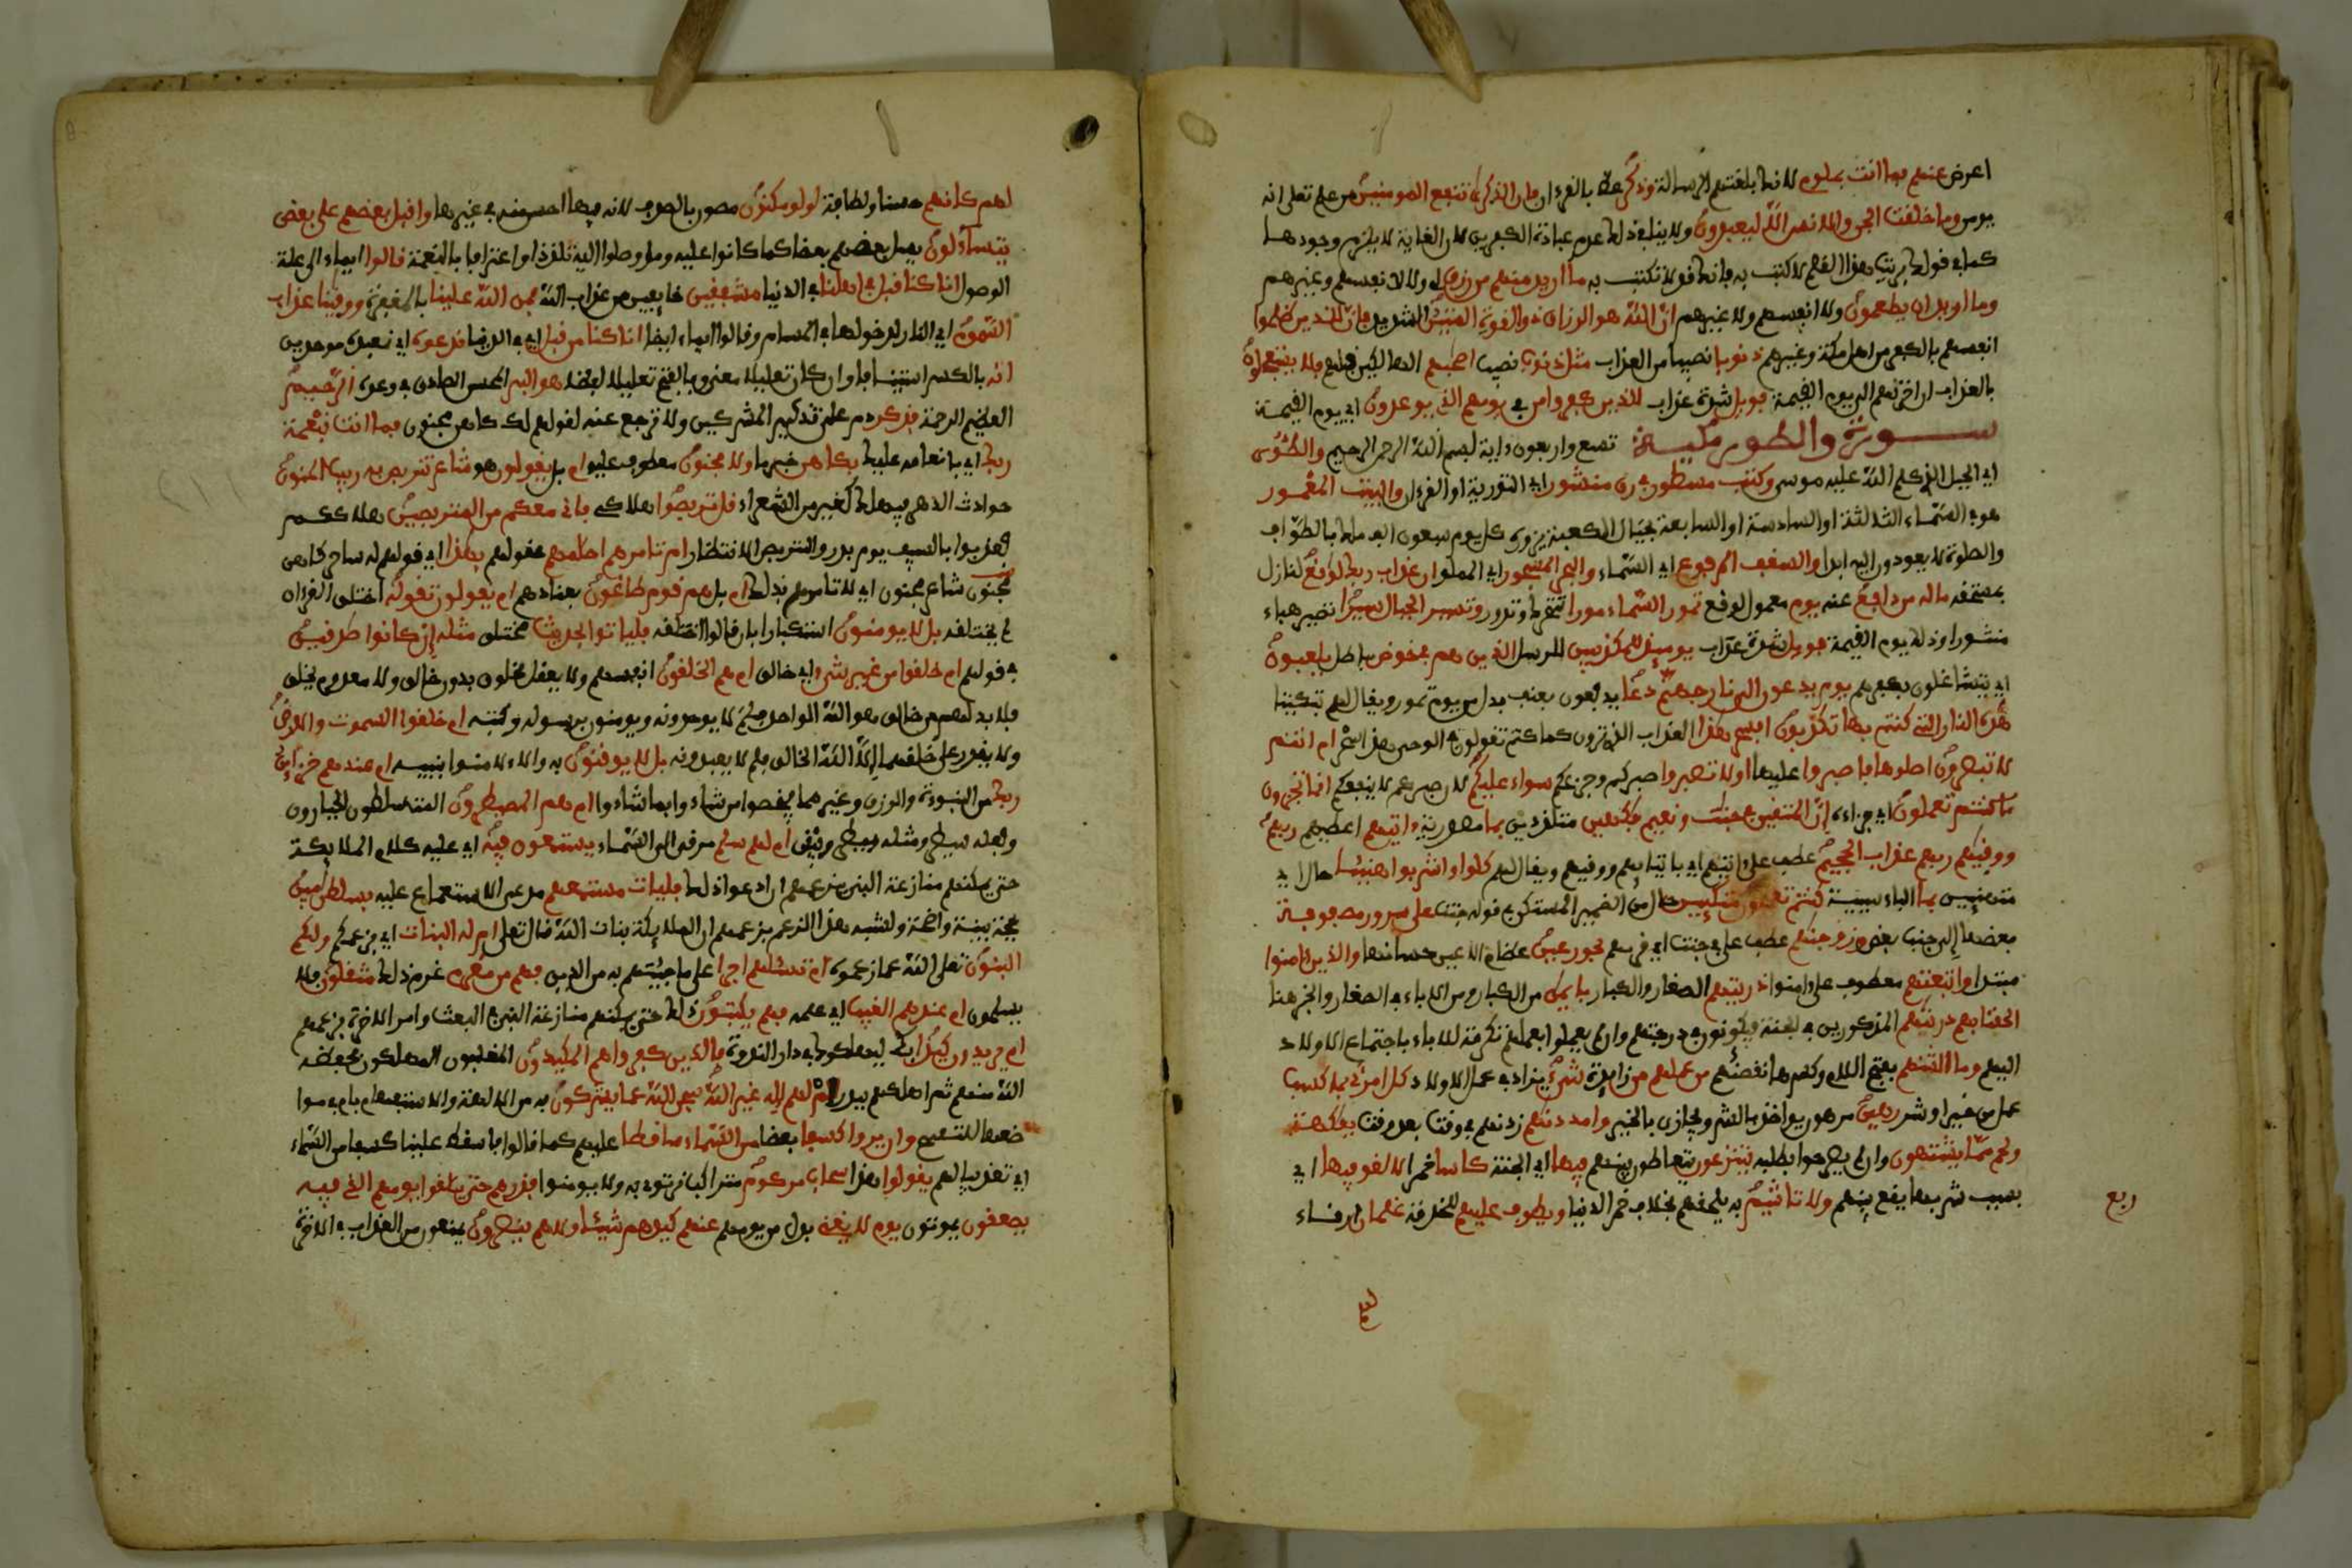 اعرض عنهم فما انت بملوم لانك بلغتهم الرسالة وذكر عظ بالقرءان فان الذكرى تنفع المومنين من علم تعلى انه
يومن وما خلقت الجن والانس الا ليعبدون ولا ينافى ذلك عدم عبادة الكفرين لان الغاية لا يلزم وجودها
كما في قولك بريت هذا القلم لاكتب به فانك قد لا تكتب به ما اريد منهم من رزق لى ولا لانفسهم وغيرهم
وما اريد ان يطعمون ولا انفسهم ولا غيرهم ان الله هو الرزاق ذو القوة المتين الشديد فان للذين ظلموا
انفسهم بالكفر من اهل مكة وغيرهم ذنوبا نصيبا من العذاب مثل ذنوب نصيب اصحبهم الهالكين قبلهم فلا يستعجلون
بالعذاب ان اخرتهم الى يوم القيمة فويل شدة عذاب للذين كفروا من في يومهم الذي يوعدون اي يوم القيمة
سورة والطور مكية تسع واربعون ءاية بسم الله الرحمن الرحيم والطور
اي الجبل الذي كلم الله عليه موسى وكتب مسطور في رق منشور اي التورية او القرءان والبيت المعمور
هو في السماء الثالثة او السادسة او السابعة بحيال الكعبة يزوره كل يوم سبعون الف ملك بالطواف
والصلوة لا يعودون اليه ابدا والسقف المرفوع اي السماء والبحر المسجور اي المملو ان عذاب ربك لواقع لنازل
بمستحقه ما له من دافع عنه يوم معمول لوقع تمور السماء مورا تتحرك وتدور وتسير الجبال سيرا تصير هباء
منثورا وذلك يوم القيمة فويل شدة عذاب يومئذ للمكذبين للرسل الذين هم في خوض باطل يلعبون
اي يتشاغلون بكفرهم يوم يدعون الى نار جهنم دعا يدفعون بعنف بدل من يوم تمور ويقال لهم تبكيتا
هذه النار التي كنتم بها تكذبون افسحر هذا العذاب الذي ترون كما كنتم تقولون في الوحي هذا سحر ام انتم
لا تبصرون اصلوها فاصبروا عليها او لا تصبروا صبركم وجزعكم سواء عليكم لان صبركم لا ينفعكم انما تجزون
ما كنتم تعملون اي جزاءه ان المتقين في جنت ونعيم فكهين متلذذين بما مصدرية ءاتيهم اعطيهم ربهم
ووقيهم ربهم عذاب الجحيم عطف على ءاتيهم اي باتيانهم ووقيهم ويقال لهم كلوا واشربوا هنيئا حال اي
متهنيين بما الباء سببية كنتم تعملون متكيين حال من الضمير المستكن في قوله جنت على سرر مصفوفة
بعضها الى جنب بعض وزوجنهم عطف على في جنت اي قرنهم بحور عين عظام الاعين حسانها والذين ءامنوا
مبتدا واتبعتهم معطوف على ءامنوا ذريتهم الصغار والكبار بايمن من الكبار ومن الاباء في الصغار والخبر هنا
الحقنا بهم ذريتهم المذكورين في الجنة فيكونون في درجتهم وان لم يعملوا بعملهم تكرمة للاباء باجتماع الاولاد
اليهم وما التنهم بفتح اللام وكسرها نقصنهم من عملهم من زايدة شيء يزاد في عمل الاولاد كل امرئ بما كسب
عمل من خير او شر رهين مرهون يواخذ بالشر ويجازى بالخير وامددنهم زدنهم في وقت بعد وقت بفكهة
ولحم مما يشتهون وان لم يصرحوا بطلبه يتنزعون يتعاطون بينهم فيها اي الجنة كاسا خمرا لا لغو فيها اي
بسبب شربها يقع بينهم ولا تاثيم به يلحقهم بخلاف خمر الدنيا ويطوف عليهم للخدمة غلمان ارقاء
ربع
لهم
لهم كانهم حسنا ولطافة لولو مكنون مصون بالصدف لانه فيها احسن منه في غيرها واقبل بعضهم على بعض
يتساءلون يسل بعضهم بعضا كما كانوا عليه وما وصلوا اليه تلذذا واعترافا بالنعمة قالوا ايماء الى علة
الوصول انا كنا قبل في اهلنا في الدنيا مشفقين خايفين من عذاب الله فمن الله علينا بالمغفرة ووقينا عذاب
السموم اي النار لدخولها في المسام وقالوا ايماء ايضا انا كنا من قبل اي في الدنيا ندعوه اي نعبده موحدين
انه بالكسر استينافا وان كان تعليلا معنى وبالفتح تعليلا لفظا هو البر المحسن الصادق في وعده الرحيم
العظيم الرحمة فذكر دم على تذكير المشركين ولا ترجع عنه لقولهم لك كاهن مجنون فما انت بنعمة
ربك اي بانعامه عليك بكاهن خبر ما ولا مجنون معطوف عليه ام بل يقولون هو شاعر نتربص به ريب المنون
حوادث الدهر فيهلك كغيره من الشعراء قل تربصوا هلاكي فاني معكم من المتربصين هلاككم
فعذبوا بالسيف يوم بدر والتربص الانتظار ام تامرهم احلمهم عقولهم بهذا اي قولهم له ساحر كاهن
مجنون شاعر مجنون اي لا تامرهم بذلك ام بل هم قوم طاغون بعنادهم ام يقولون تقوله اختلق القرءان
لم يختلقه بل لا يومنون استكبارا فان قالوا اختلقه فلياتوا بحديث مختلق مثله ان كانوا صدقين
في قولهم ام خلقوا من غير شيء اي خالق ام هم الخلقون انفسهم ولا يعقل مخلوق بدون خالق ولا معدوم يخلق
فلا بد لهم من خالق هو الله الواحد فلم لا يوحدونه ويومنون برسوله وكتبه ام خلقوا السموت والارض
ولا يقدر على خلقهما الا الله الخالق فلم لا يعبدونه بل لا يوقنون به والا لامنوا بنبيه ام عندهم خزاين
ربك من النبوءة والرزق وغيرهما فيخصوا من شاءوا بما شاءوا ام هم المصيطرون المتسلطون الجبارون
وفعله سيطر ومثله بيطر وبيقر ام لهم سلم مرقى الى السماء يستمعون فيه اي عليه كلام الملايكة
حتى يمكنهم منازعة النبي بزعمهم ان ادعوا ذلك فليات مستمعهم مدعي الاستماع عليه بسلطن مبين
بحجة بينة واضحة ولشبه هذا الزعم بزعمهم ان الملايكة بنات الله قال تعلى ام له البنات اي بزعمكم ولكم
البنون تعلى الله عما زعموه ام تسئلهم اجرا على ما جيتهم به من الدين فهم من مغرم غرم ذلك مثقلون فلا
يسلمون ام عندهم الغيب اي علمه فهم يكتبون ذلك حتى يمكنهم منازعة النبي في البعث وامر الاخرة بزعمهم
ام يريدون كيدا بك ليهلكوك في دار الندوة فالذين كفروا هم المكيدون المغلبون المهلكون فحفظه
الله منهم ثم اهلكهم ببدر ام لهم اله غير الله سبحن الله عما يشركون به من الالهة والاستفهام بام في مواضعها
للتقبيح وان يروا كسفا بعضا من السماء ساقطا عليهم كما قالوا فاسقط علينا كسفا من السماء
اي تعذيبا لهم يقولوا هذا سحاب مركوم متراكب نرتوي به ولا يومنوا فذرهم حتى يلقوا يومهم الذي فيه
يصعقون يموتون يوم لا يغني بدل من يومهم عنهم كيدهم شيئا ولا هم ينصرون يمنعون من العذاب في الاخرة